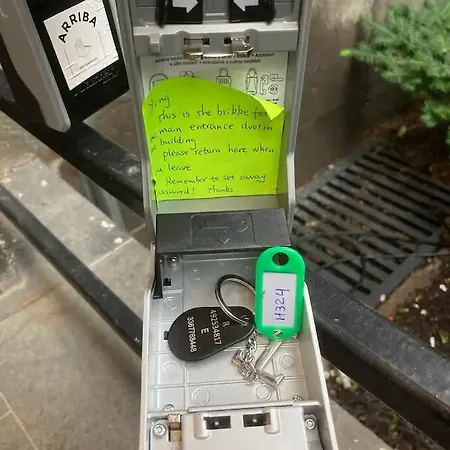 ARRIBA
Ying
This is the brikke for
main entrance door in
building
please return here when
u leave
Remember to set away
password! Thanks
H324
R
E
492534817
3367768448